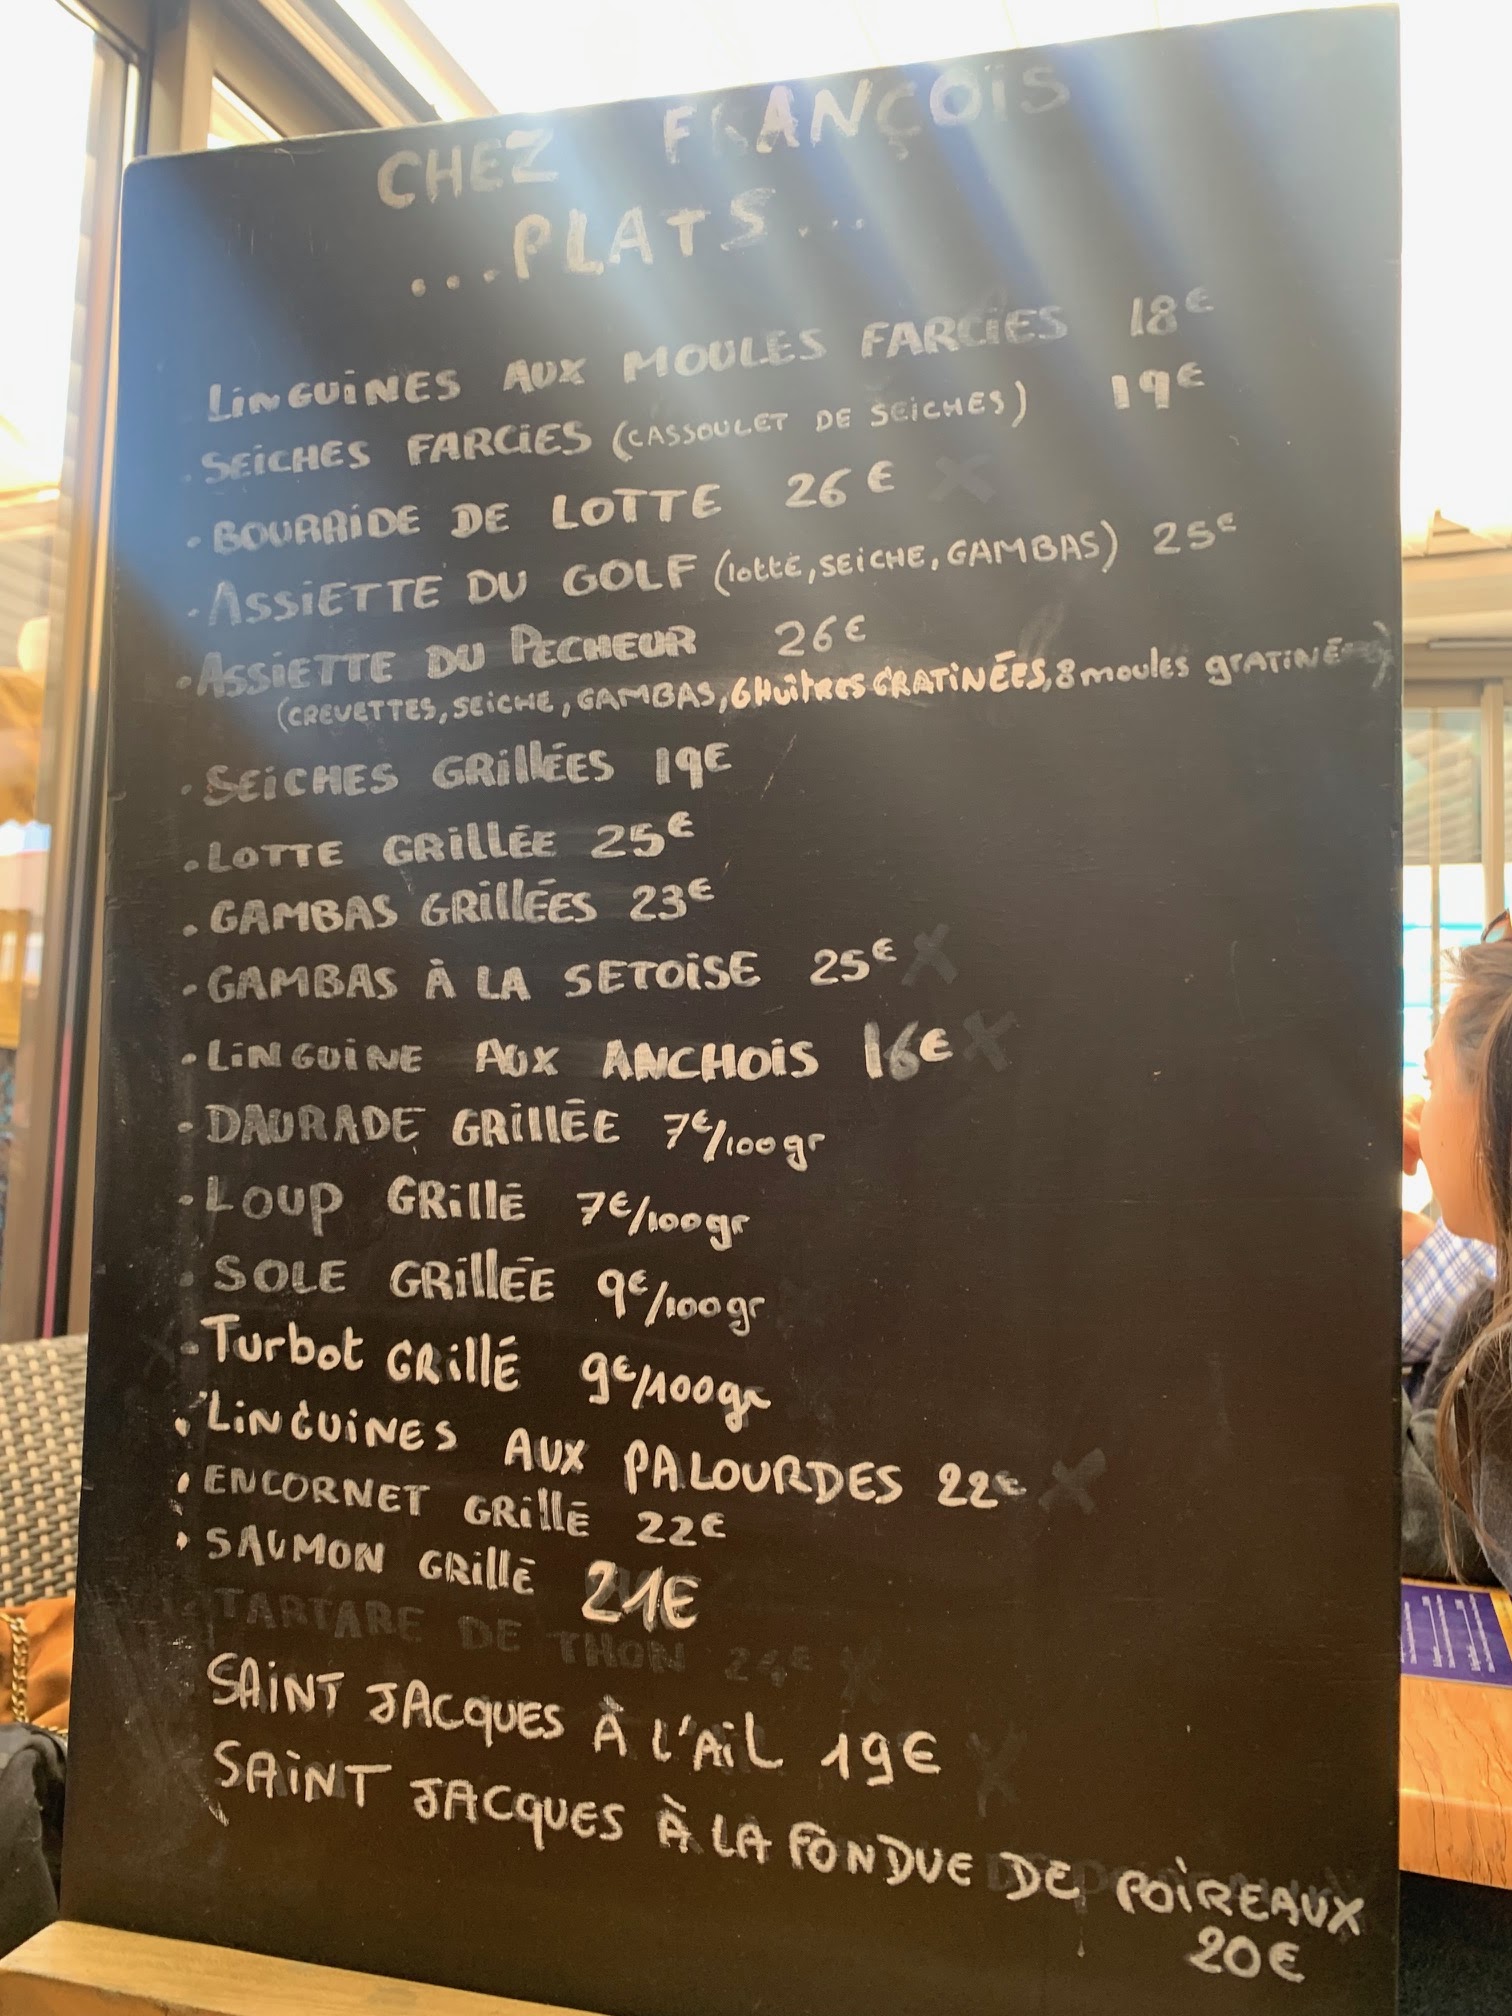 CHEZ FRANÇOIS
...PLATS...
LINGUINES AUX MOULES FARCIES 18€
· SEICHES FARCIES (CASSOULET DE SEICHES) 19€
· BOURRIDE DE LOTTE 26€ X
· ASSIETTE DU GOLF (lotte, SEICHE, GAMBAS) 25€
· ASSIETTE DU PECHEUR 26€
(CREVETTES, SEICHE, GAMBAS, 6 HUÎTRES GRATINÉES, 8 moules GRATINÉES)
· SEICHES GRILLÉES 19€
· LOTTE GRILLÉE 25€
· GAMBAS GRILLÉES 23€
· GAMBAS À LA SETOISE 25€ X
· LINGUINE AUX ANCHOIS 16€ X
· DAURADE GRILLÉE 7€/100gr
· LOUP GRILLÉ 7€/100gr
· SOLE GRILLÉE 9€/100gr
· Turbot GRILLÉ 9€/100gr
· LINGUINES AUX PALOURDES 22€ X
· ENCORNET GRILLÉ 22€
· SAUMON GRILLÉ 21€
TARTARE DE THON 24€ X
SAINT JACQUES À L'AIL 19€ X
SAINT JACQUES À LA FONDUE DE POIREAUX
20€